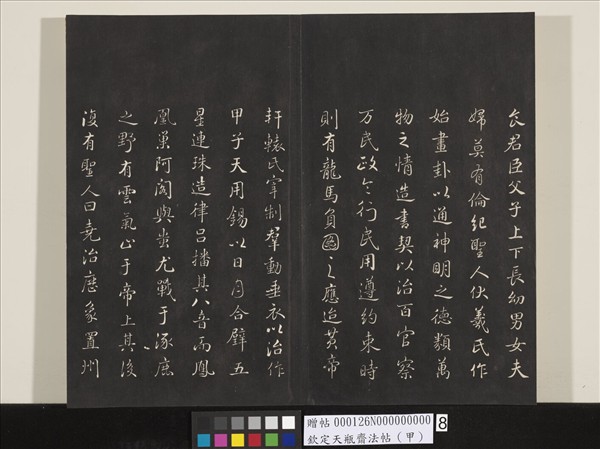 食君臣父子上下長幼男女夫
婦莫有倫紀聖人伏羲氏作
始畫卦以通神明之德類萬
物之情造書契以治百官察
万民政令行民用遵約束時
則有龍馬負圖之應迨黃帝
軒轅氏宰制羣動垂衣以治作
甲子天用錫以日月合璧五
星連珠造律呂播其八音而鳳
凰巢阿閣與蚩尤戰于涿鹿
之野有雲氣止于帝上其後
復有聖人曰堯治歷象置州
贈帖 000126N000000000
欽定天瓶齋法帖(甲)
8